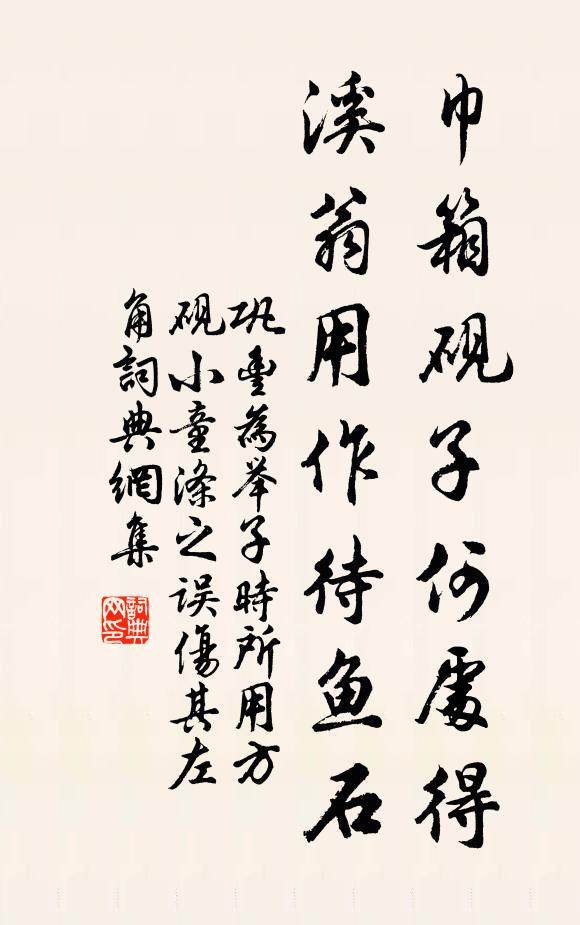 巾箱砚子何處得
溪翁用作待鱼石
巩豊為举子時所用方
砚小童涤之误傷其左
角詞典網集
詞典
网印